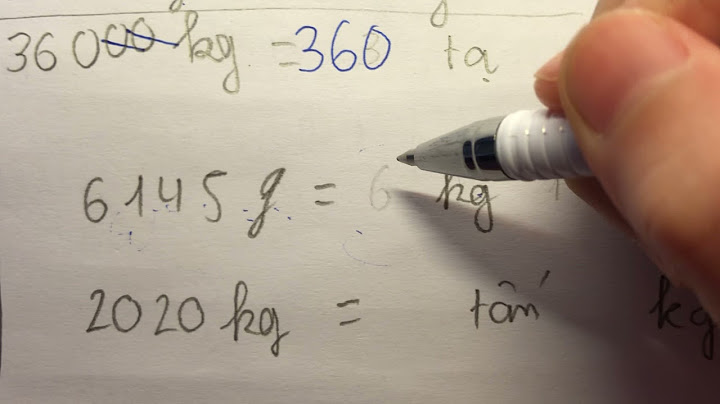 36000 kg = 360 tạ
6145 g = 6 kg
2020 kg = tấn kg